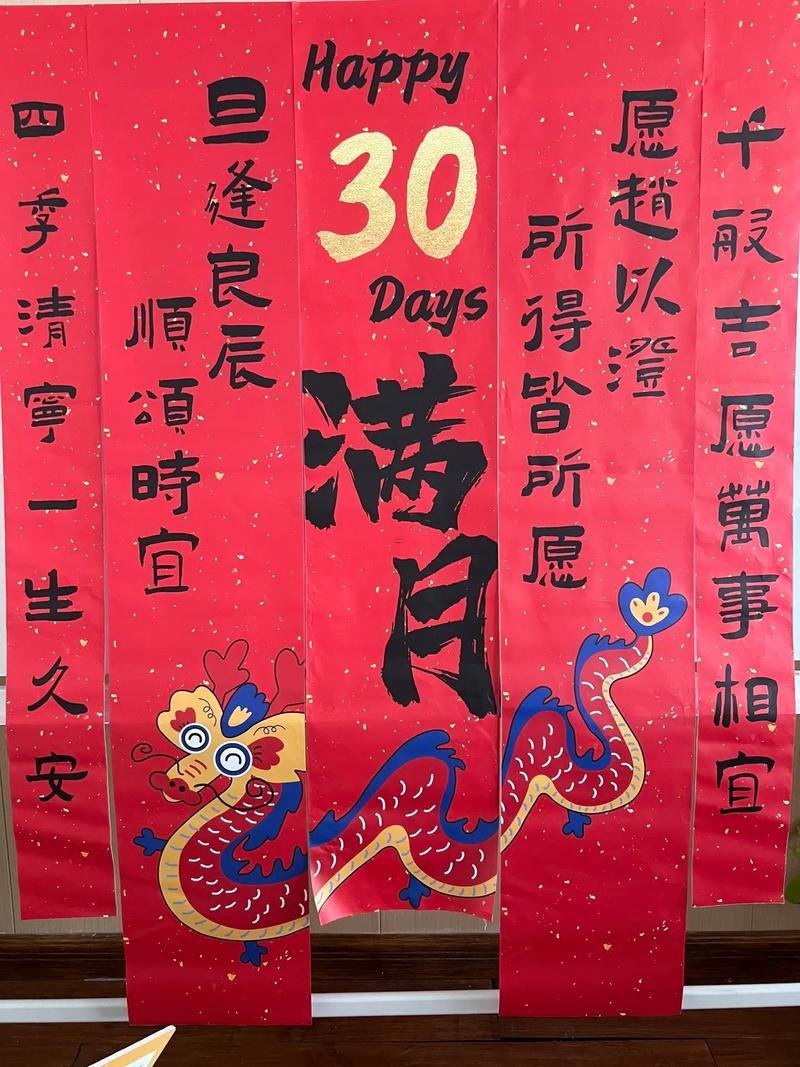 千般吉愿萬事相宜
愿趙以澄
所得皆所愿
Happy
30
Days
满月
旦逢良辰
順頌時宜
四季清寧一生久安